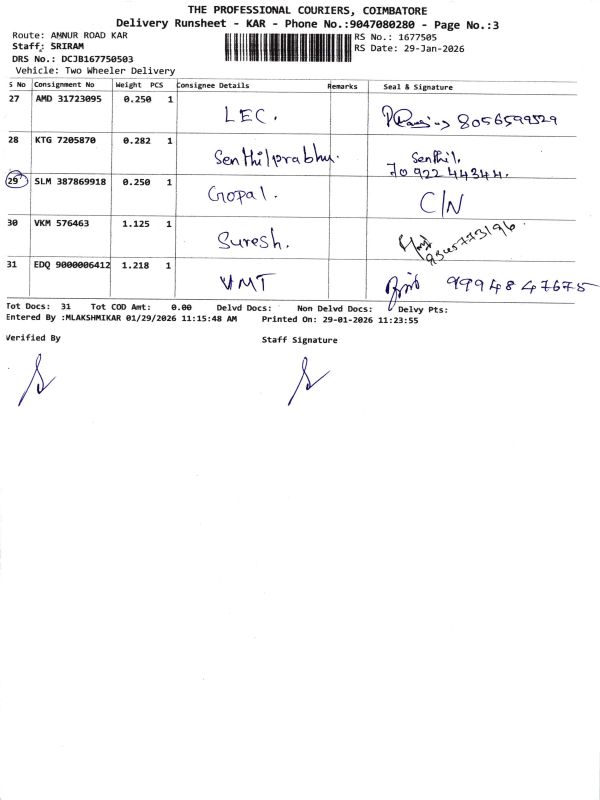 THE PROFESSIONAL COURIERS, COIMBATORE
Delivery Runsheet - KAR - Phone No.:9047080280 - Page No.:3
Route: ANNUR ROAD KAR RS No.: 1677505
Staff: SRIRAM RS Date: 29-Jan-2026
DRS No.: DCJB167750503
Vehicle: Two Wheeler Delivery
S No Consignment No Weight PCS Consignee Details Remarks Seal & Signature
27 AMD 31723095 0.250 1 LEC. 8056599529
28 KTG 7205870 0.282 1 Senthilprabhu. Senthil.
70 922 44344.
29 SLM 387869918 0.250 1 Gopal. C/N
30 VKM 576463 1.125 1 Suresh.
31 EDQ 9000006412 1.218 1 VMT 9994847675
Tot Docs: 31 Tot COD Amt: 0.00 Delvd Docs: Non Delvd Docs: Delvy Pts:
Entered By :MLAKSHMIKAR 01/29/2026 11:15:48 AM Printed On: 29-01-2026 11:23:55
Verified By Staff Signature